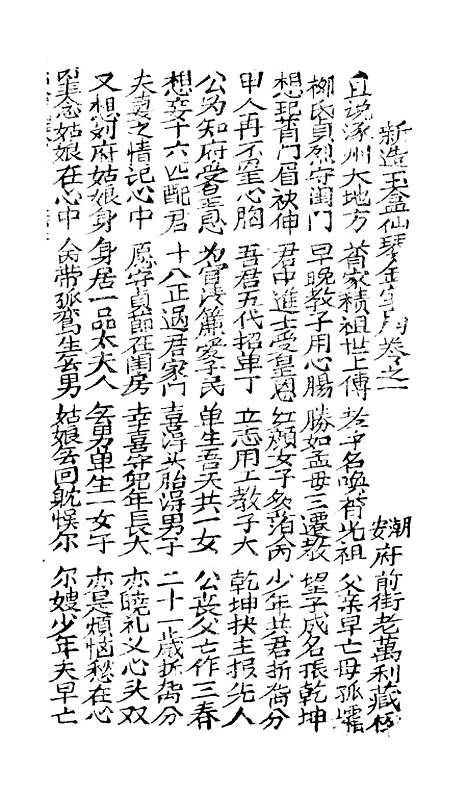 新造玉盒仙琴卷之一
潮安府前街老萬利藏板
且说涿州大地方 胥家積祖世上傳 名喚胥光祖 父亲早亡母孤孀
柳氏貞烈守閨门 早晚教子用心腸 勝如孟母三遷教 望子成名振乾坤
想 胥门眉袂伸 君中進士受皇恩 红颜女子多薄命 少年共君折鴛分
甲人再不 心胸 吾君五代招单丁 立志用工教子大 乾坤扶主报先人
公為知府受皇恩 為官清簾愛子民 单生吾夫共一女 公丧父亡作三春
想妾十六匹配君 十八正過君家门 喜得头胎得男子 二十一歲折鴛分
夫妻之情记心中 愿守貞節在閨房 幸喜子兒年長大 亦曉礼义心头双
又想刘府姑娘身 身居一品太夫人 無男单生一女子 亦是煩惱愁在心
念姑娘在心中 命带孤鸞生無男 姑娘無回躭悮尔 尔嫂少年夫早亡